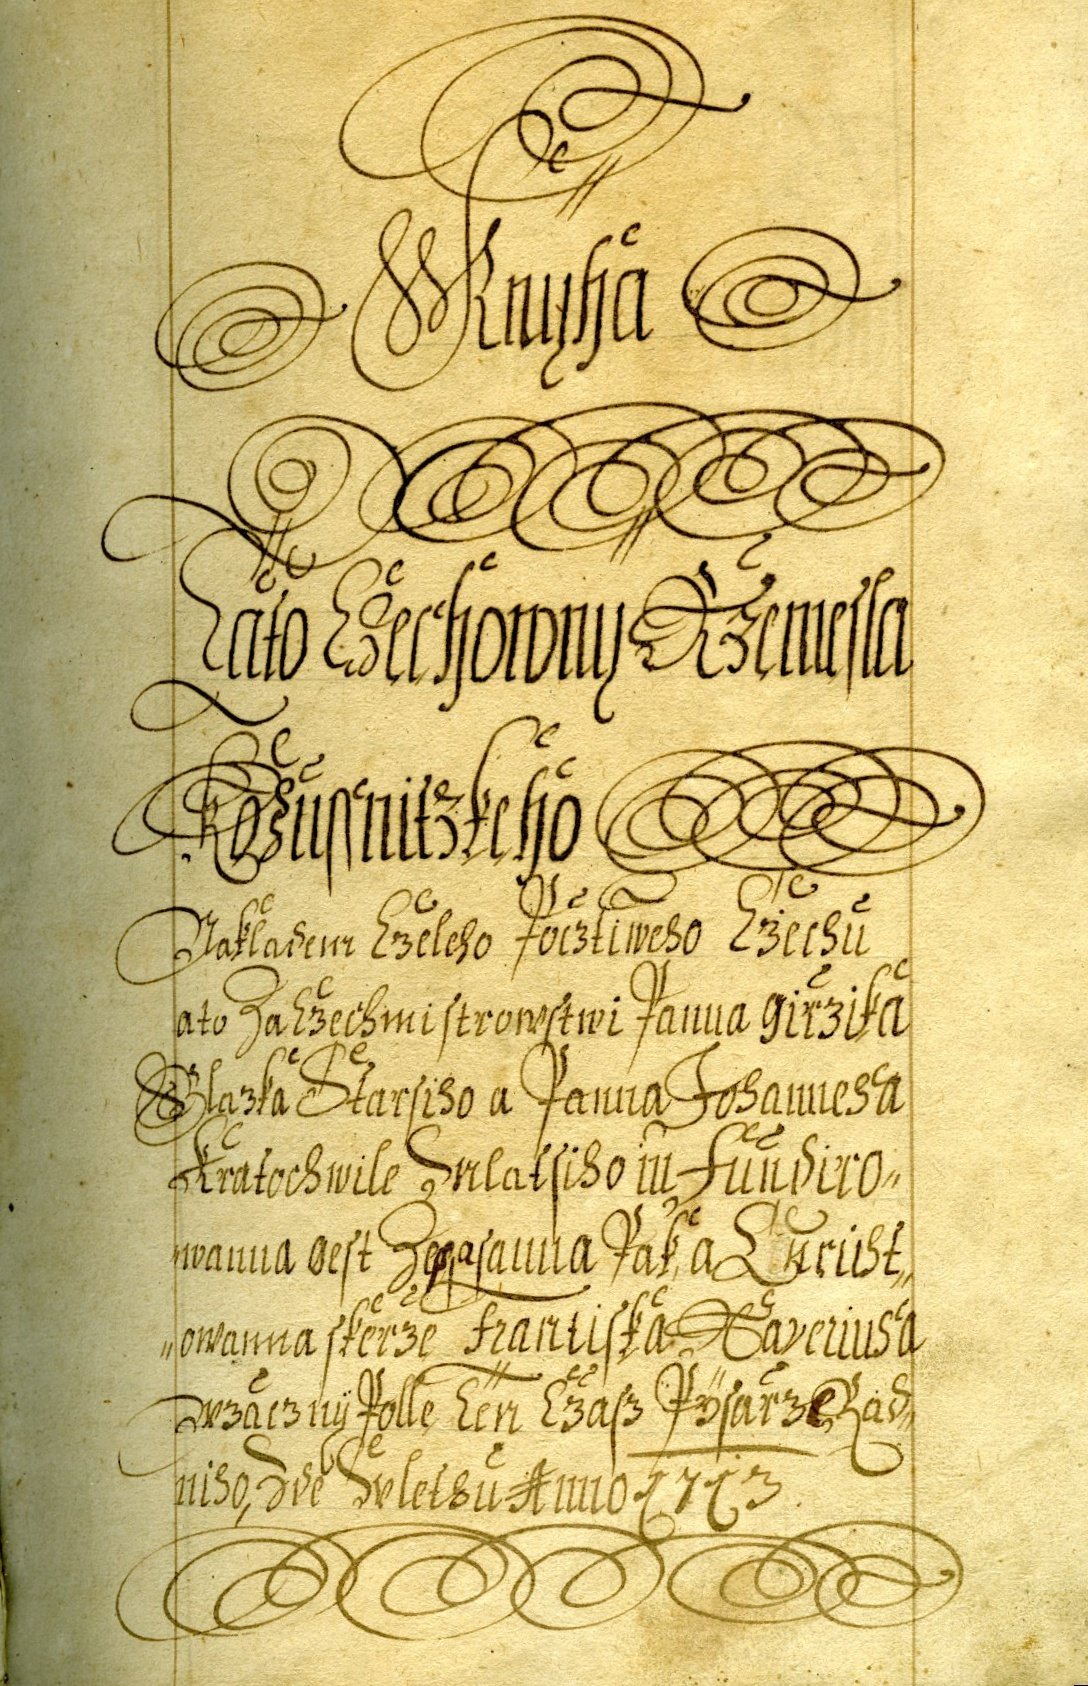 Knyha
Tato Czechowny Rzemesla
Kozussnitzkeho
Nakladem Czeleho Pocztiweho Czechu
ato Za Czechmistrowstwi Panna Girzika
Blazka Starsiho a Panna Johannesa
Kratochwile Mlatsiho in Fundiro„
wanna gest Zepsanna Pak, a
„owanna skerze Frantiska Xaveriusa
Polle Ten Czasz Pÿsarze Rad„
niho, Anno 1713.